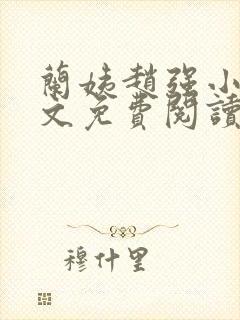 蘭姨趙強小
文免費閱讀
穆什里